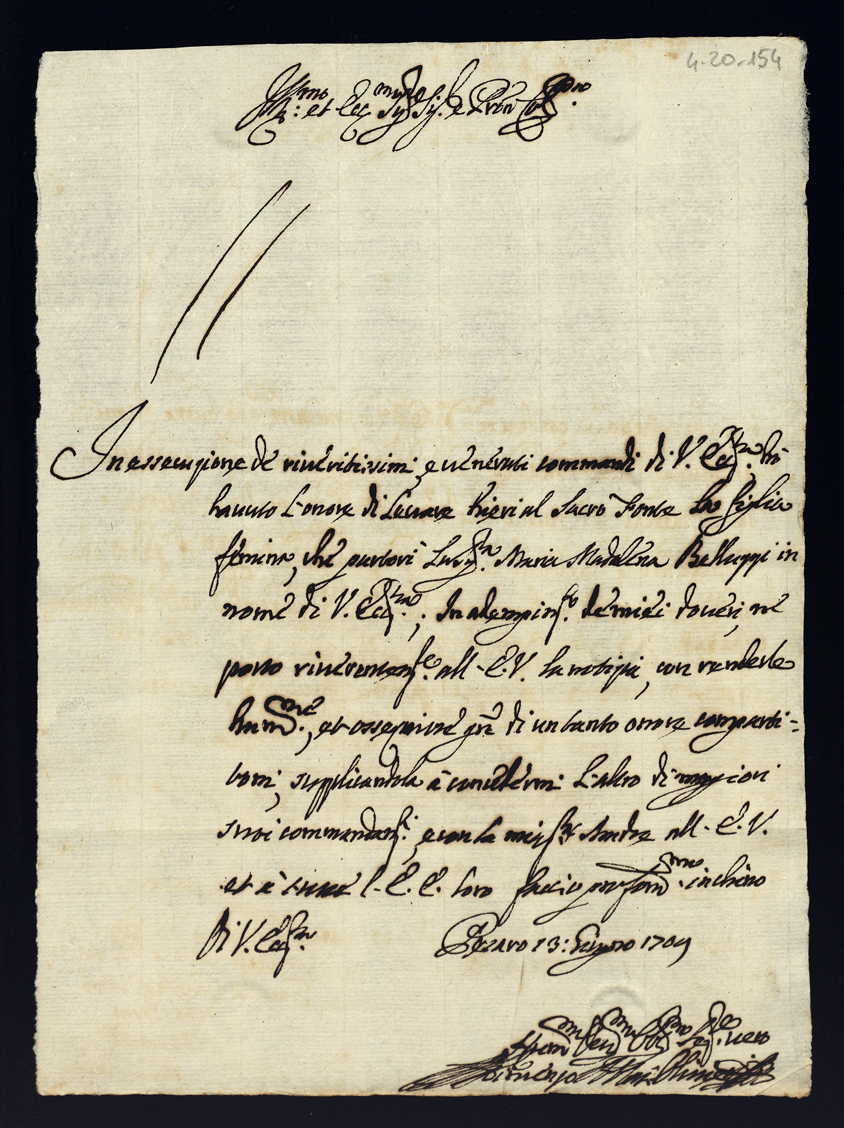 4-20-154
Ill.mo et Ecc.mo Sig. Sig. e Pron Col.mo
In essecuzione de riveritissimi, e venerati commandi di V. Ecc.za hò
havuto l'onore di levare hieri al Sacro Fonte la figlia
femina, che partorì la Sig.ra Maria Madalena Belluzzi in
nome di V. Ecc.za; In adempim.to de miei doveri, ne
porto riverentem.te all'E.V. la notizia, con renderle
hum.me, et ossequiose gr.e di un tanto onore comparti=
tomi, supplicandola à concedermi l'altro di maggiori
suoi commandam.ti, e con la mia Sig.ra Madre all'E.V.
et à tutte l'E.E. loro faccio profond.mo inchino
Di V. Ecc.za Pesaro 13: Giugno 1709
Hum. Dev. Obl. Ser.re vero